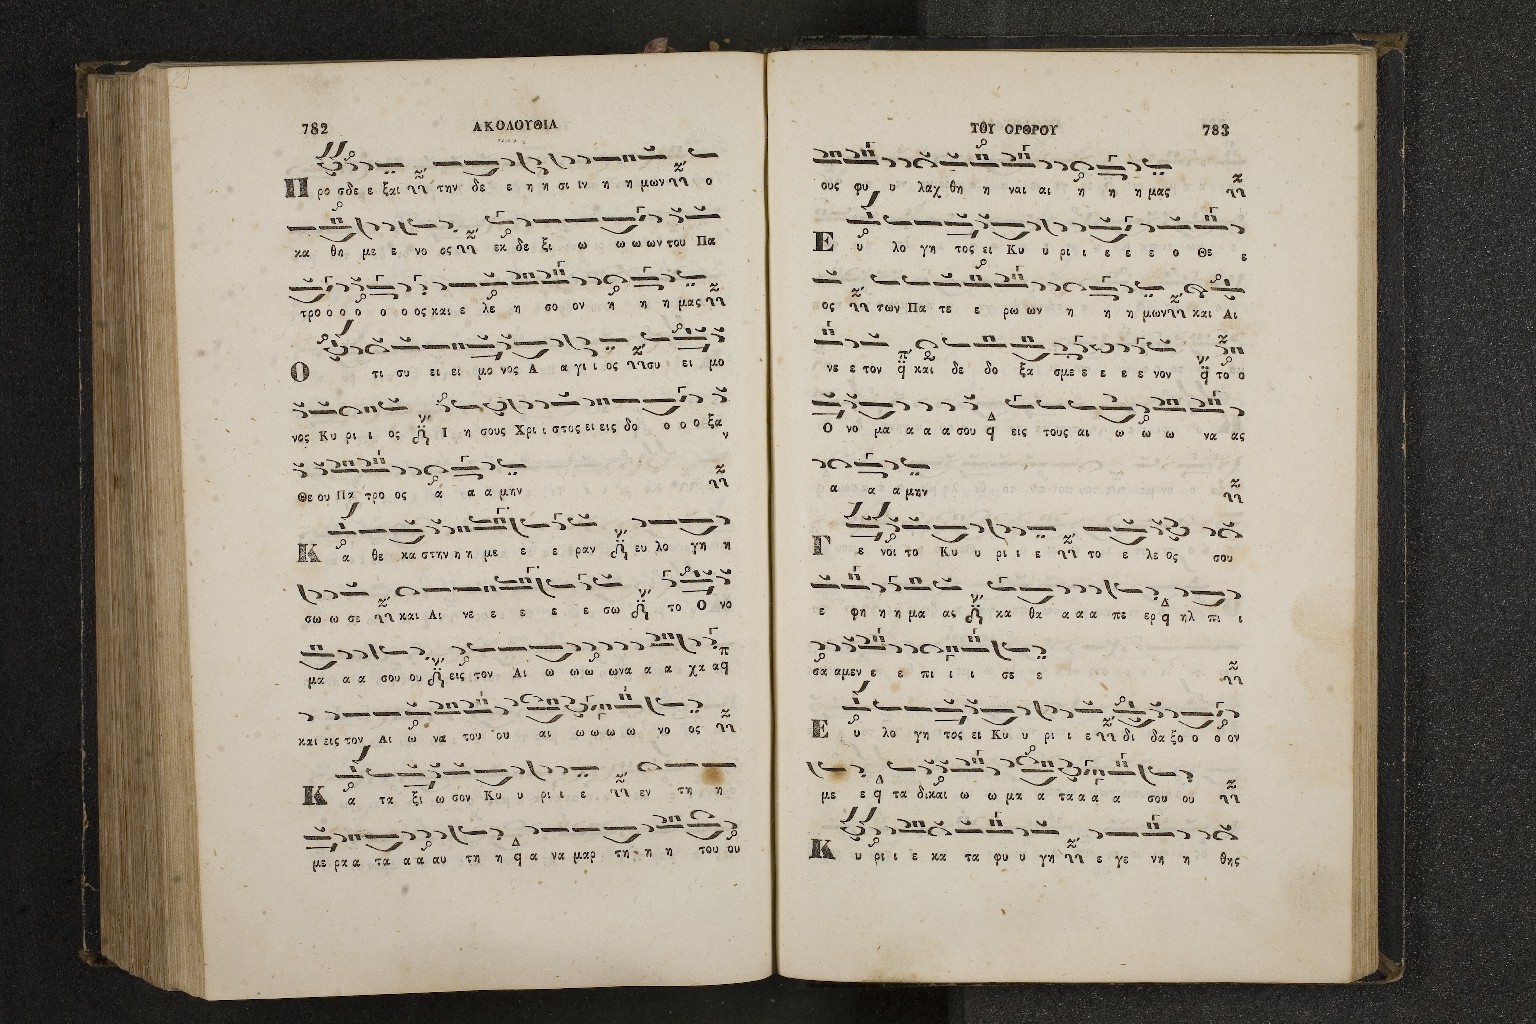 782
ΑΚΟΛΟΥΘΙΑ
Προσδε ε ξαι την δε ε η η σι ιν η η μων ο
κα θη με ε νο ος εκ δε ξι ω ω ω ων του Πα
τρο ο ο ο ο ο ος και ε λε η σο ον η η η μας
Ο τι συ ει ει μο νος Α α γι ι ος συ ει μο
νος Κυ ρι ι ος Ι η σους Χρι ι στος ει εις δο ο ο ο ξα ν
Θε ου Πα τρο ος α α α μην
Κ α θε κα στην η η με ε ε ραν ευ λο γη η
σω ω σε και Αι νε ε ε ε ε σω το Ο νο
μα α α σου ου εις τον Αι ω ω ω ωνα α α χα α
και εις τον Αι ω να του ου αι ω ω ω ω νο ος
Κ α τα ξι ω σον Κυ υ ρι ι ε εν τη η
με ρα α τα α α αυ τη η α να μαρ τη η η του ου
ΤΟΥ ΟΡΘΡΟΥ
783
ους φυ υ λαχ θη η ναι αι η η η μας
Ε υ λο γη τος ει Κυ υ ρι ι ε ε ε ο Θε ε
ος των Πα τε ε ρω ων η η η μων και Αι
νε ε τον και δε δο ξα σμε ε ε ε ε νον το ο
Ο νο μα α α α σου εις τους αι ω ω ω να ας
α α α μην
Γ ε νοι το Κυ υ ρι ι ε το ε λε ος σου
ε φη η η μα ας κα θα α α α πε ερ ηλ πι ι
σα αμεν ε ε πι ι ι σε ε
Ε υ λο γη τος ει Κυ υ ρι ι ε δι δα ξο ο ο ον
με ε τα δικαι ω ω μα α τα α α α σου ου
Κ υ ρι ι ε κα τα φυ υ γη ε γε νη η θης